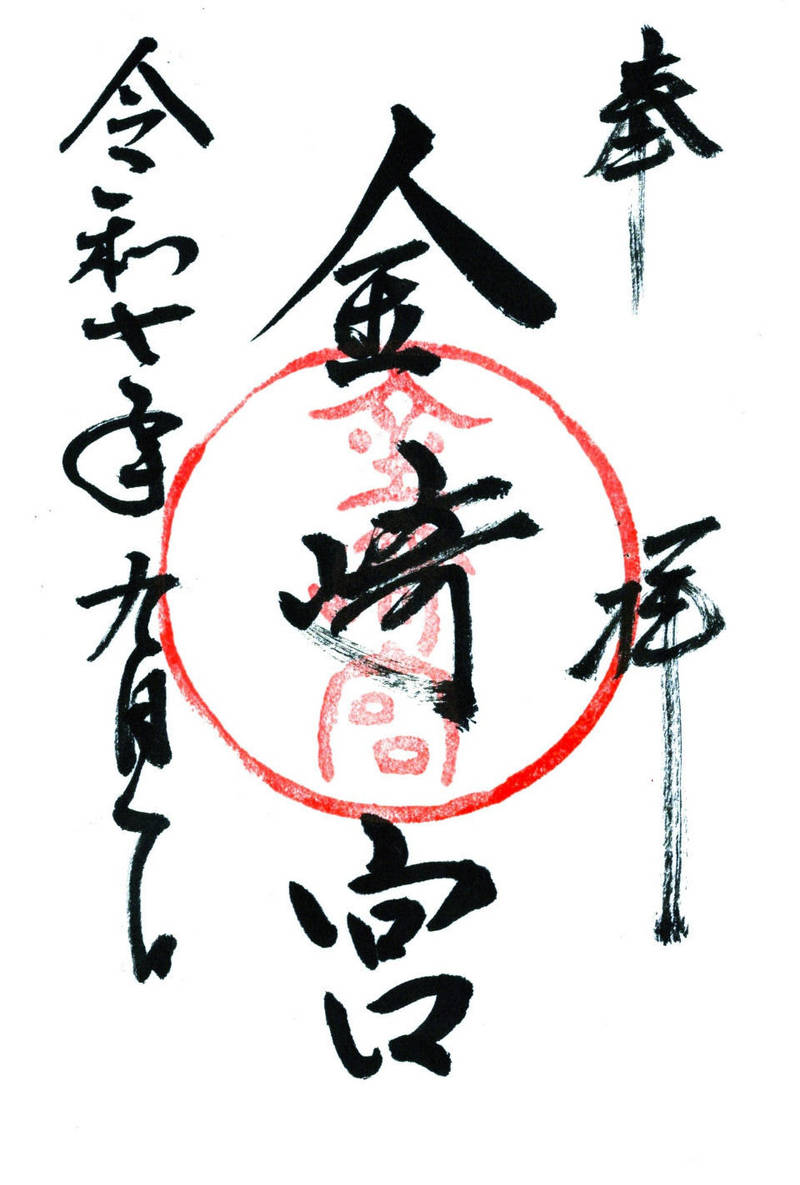 奉拝
金崎宮
金崎宮
令和七年九月